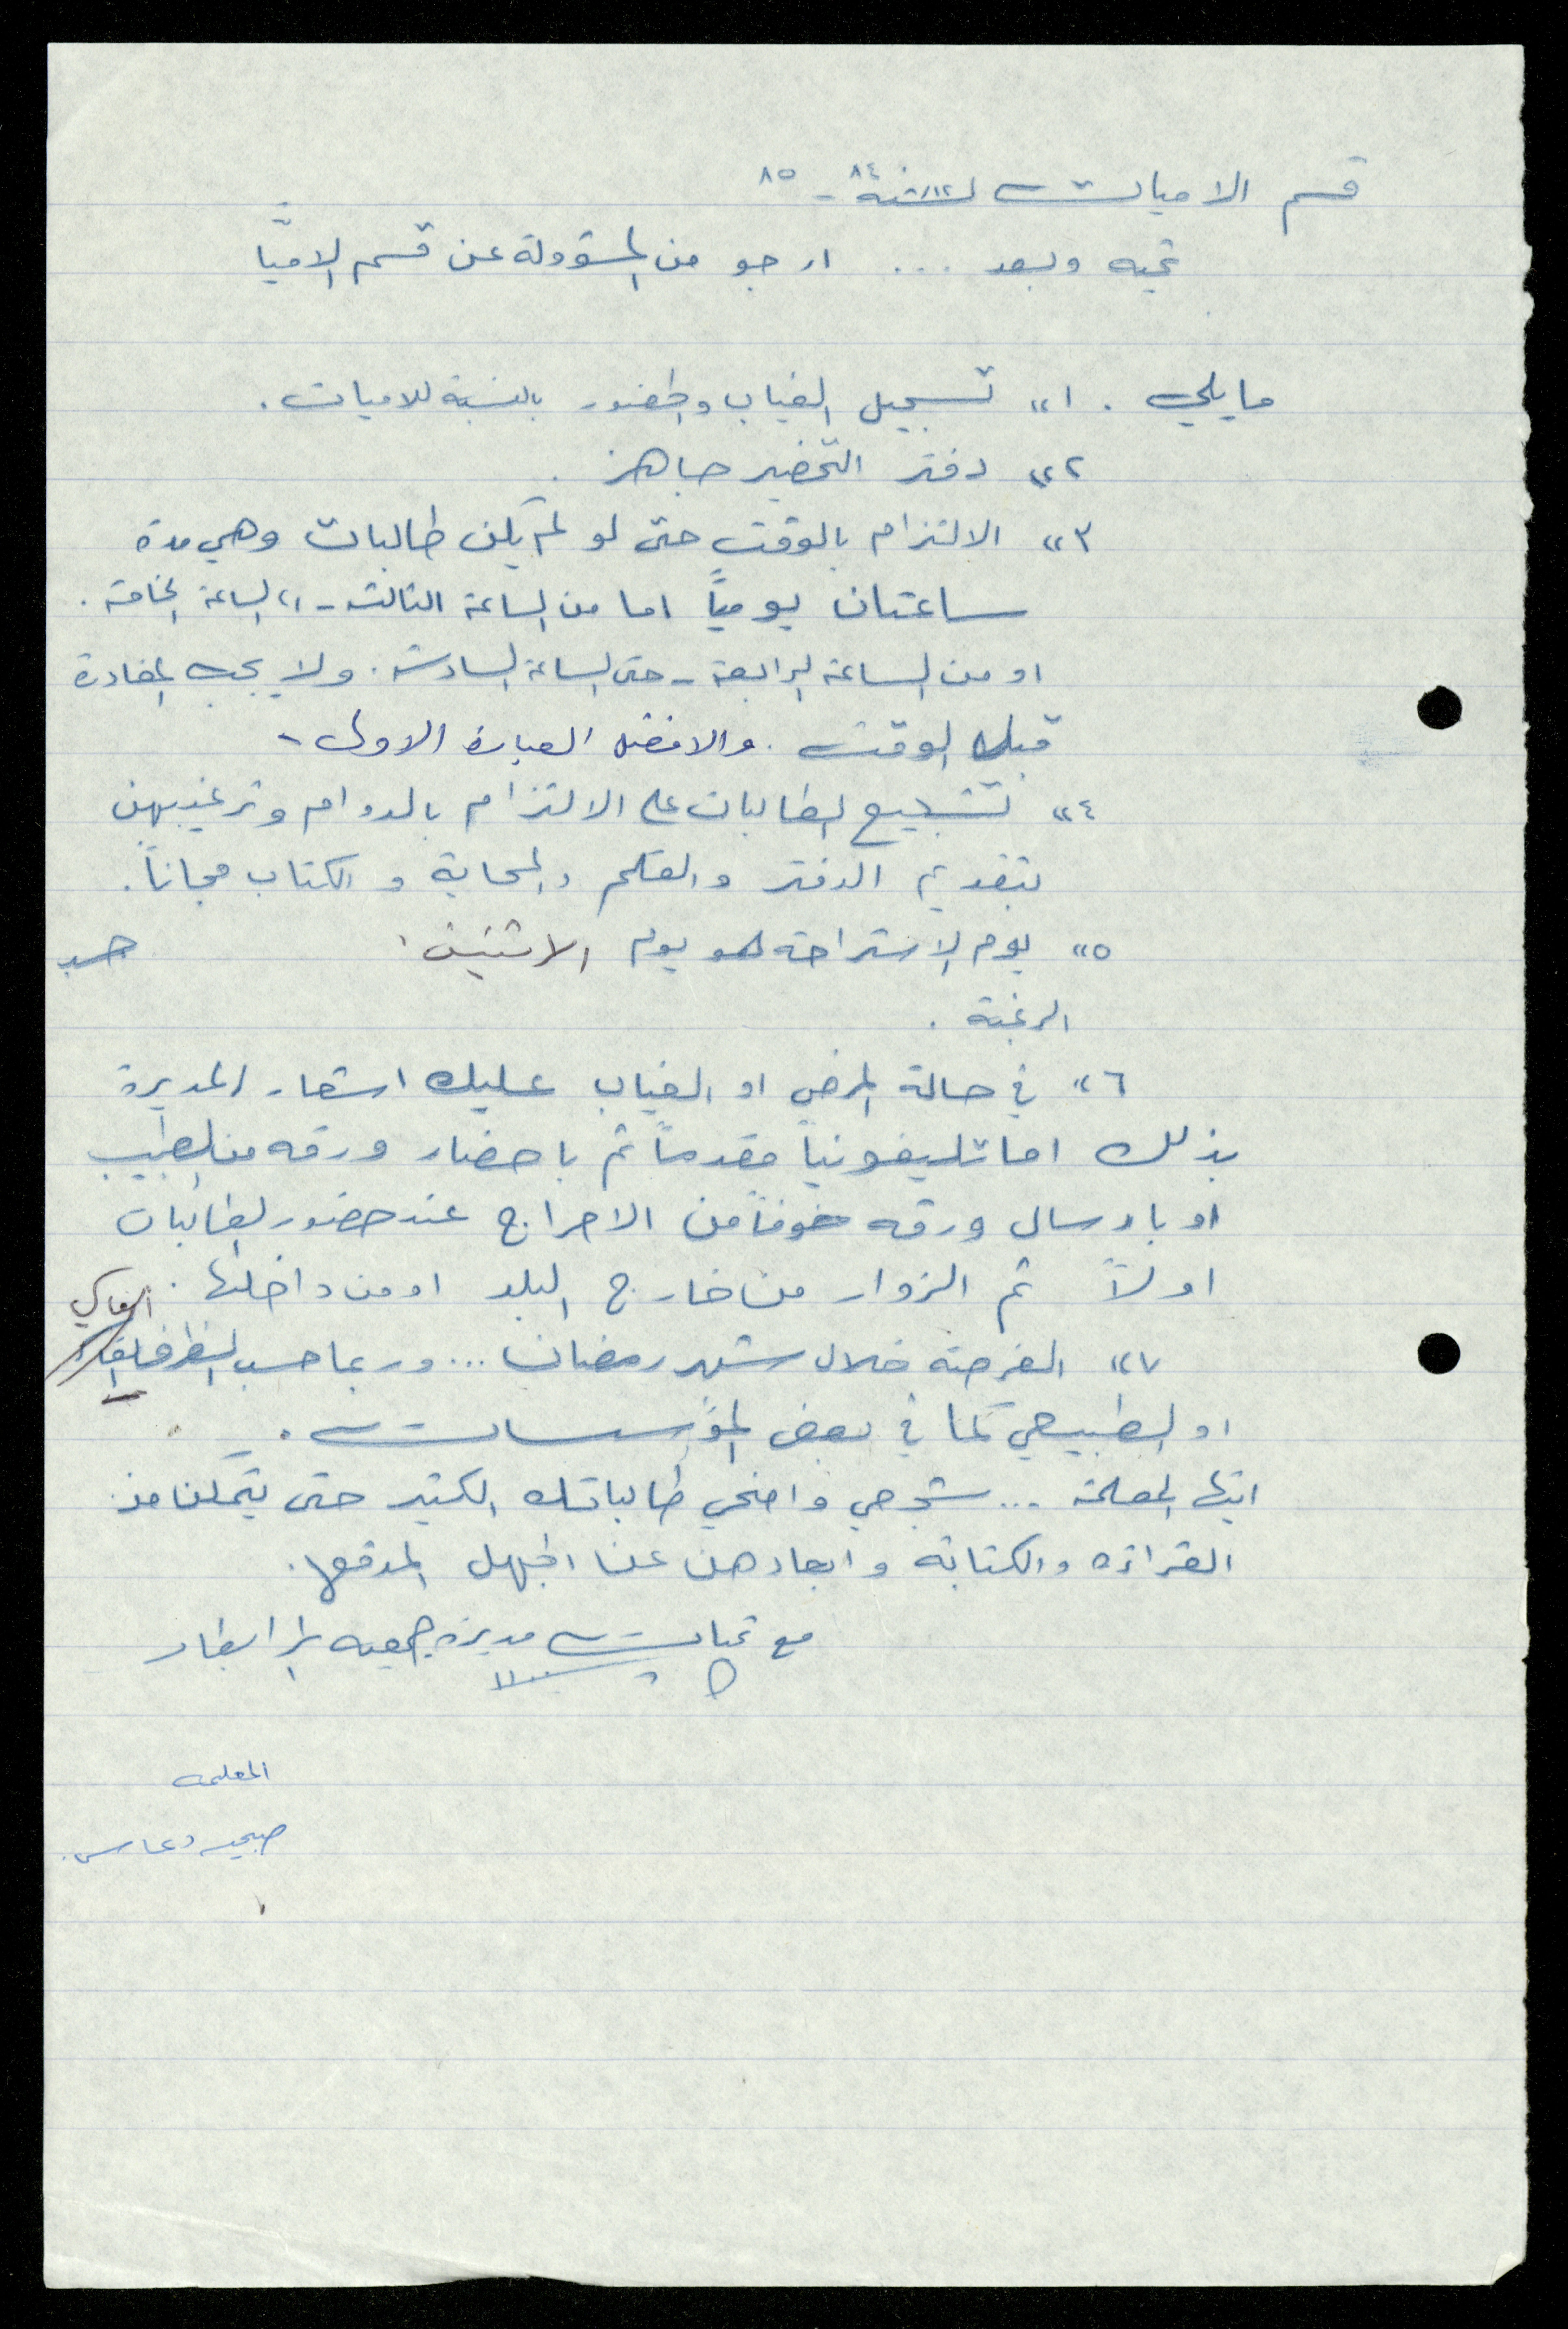 قسم الاميات لسنة ٨٤ - ٨٥
تحيه وبعد ... ارجو من المسؤولة عن قسم الاميّا
مايلي . ١" تسجيل الغياب والحضور بالنسبة للاميات .
٢" دفتر التحضير جاهز .
٣" الالتزام بالوقت حتى لو لم يكن طالبات وهي مدة
ساعتان يومياً اما من الساعة الثالثه - الى الساعة الخامسة .
او من الساعة الرابعة - حتى الساعة السادسة . ولا يجب المغادرة
قبل الوقت . والافضل العبارة الاولى -
٤" تشجيع الطالبات على الالتزام بالدوام وترغيبهن
بتقديم الدفتر والقلم والمحاية والكتاب مجاناً .
٥" يوم الاستراحة هو يوم الاثنين . حسب
الرغبة .
٦" في حالة المرض او الغياب عليك اشعار المديرة
بذلك اما تليفونياً مقدماً ثم باحضار ورقه من الطبيب
او بارسال ورقه خوفاً من الاحراج عند حضور الطالبات
اولاً ثم الزوار من خارج البلد او من داخلها .
٧" الفرصة خلال شهر رمضان ... وربما حسب الظرف القاسي
او الطبيعي كما في بعض المؤسسات .
ايتها المعلمة ... شجعي وامنحي طالباتك الكثير حتى يتمكن من
القراءه والكتابة وابعادهن عن الجهل المدقع .
مع تحيات مديرة جمعيه
المعلمه
صبحيه دعاس .